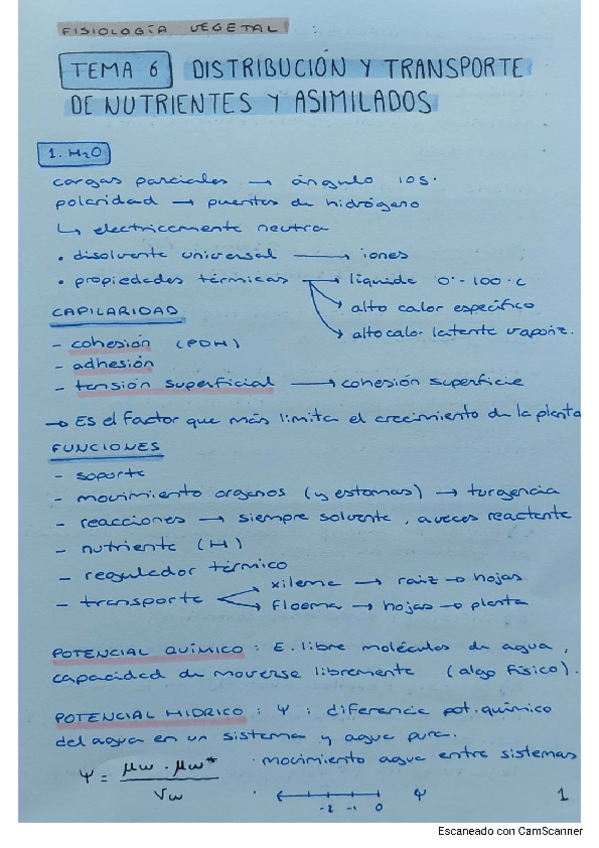 FISIOLOGÍA VEGETAL :
TEMA 6 DISTRIBUCIÓN Y TRANSPORTE
DE NUTRIENTES Y ASIMILADOS
1. H₂O
cargas parciales → ángulo 105°
polaridad → puentes de hidrógeno
↳ electricamente neutra
• disolvente universal → iones
• propiedades térmicas → líquido 0° - 100°C
→ alto calor específico
CAPILARIDAD
→ alto calor latente vaporiz.
- cohesión (PDH)
- adhesión
- tensión superficial → cohesión superficie
→ Es el factor que más limita el crecimiento de la planta
FUNCIONES
- soporte
- movimiento organos (y estomas) → turgencia
- reacciones → siempre solvente, a veces reactante
- nutriente (H)
- regulador térmico
- transporte → xilema → raiz → hojas
→ floema → hojas → planta
POTENCIAL QUÍMICO : E. libre moléculas de agua,
capacidad de moverse libremente (algo físico).
POTENCIAL HIDRICO : Ψ : diferencia pot. químico
del agua en un sistema y agua pura.
Ψ = μw · μw* / Vw
· movimiento agua entre sistemas
· -2 -1 0 Ψ
1
Escaneado con CamScanner